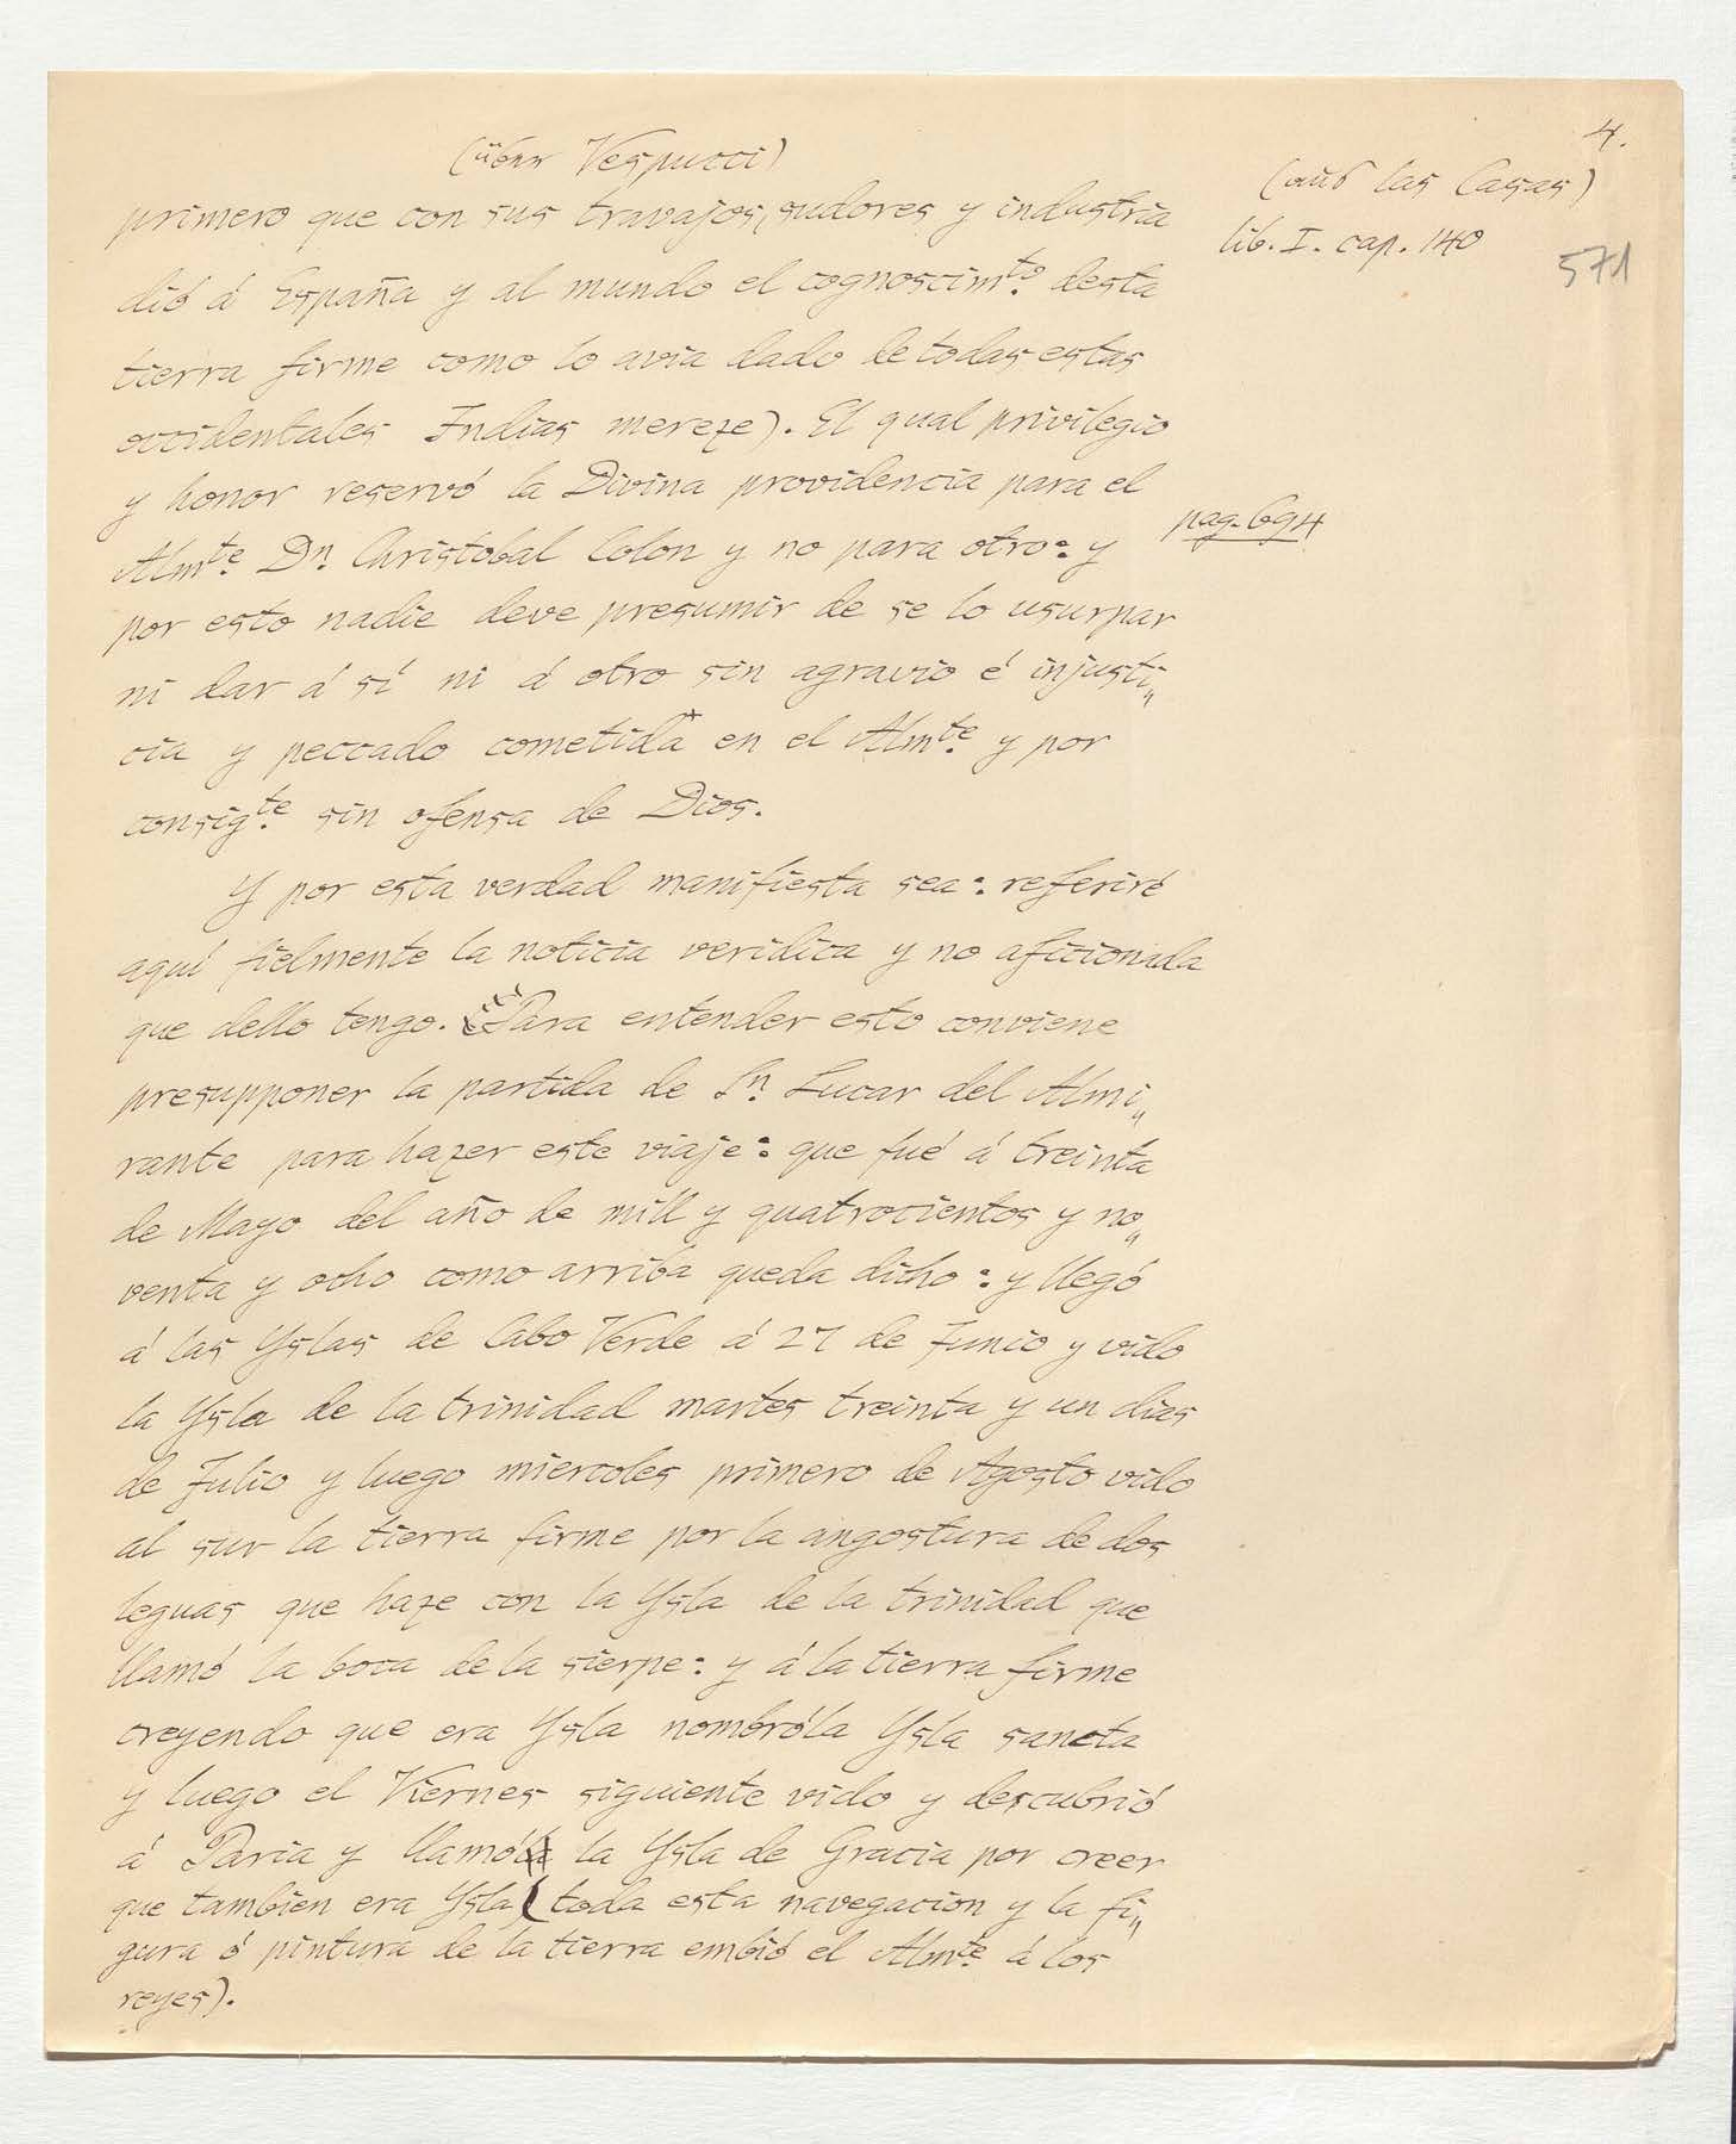 4.
(über Vespucci)
(aus las Casas)
lib. I. cap. 140
571
primero que con sus travajos, sudores y industria
dió á España y al mundo el cognoscimto. desta
tierra firme como lo avia dado de todas estas
occidentales Indias mereze). El qual privilegio
y honor reservó la Divina providencia para el
pag. 694
Almte. Dn. Christobal Colon y no para otro: y
por esto nadie deve presumir de se lo usurpar
ni dar á sí ni á otro sin agravio é injusti„
cia y peccado cometida+ en el Almte. y por
consigte. sin ofensa de Dios.
Y por esta verdad manifiesta sea: referiré
aquí fielmente la noticia veridica y no aficionada
que dello tengo. Para entender esto conviene
presupponer la partida de Sn. Lucar del Almi„
rante para hazer este viaje: que fué á treinta
de Mayo del año de mill y quatrocientos y no„
venta y ocho como arriba queda dicho: y llegó
á las Yslas de Cabo Verde á 27 de Junio y vido
la Ysla de la trinidad martes treinta y un dias
de Julio y luego miercoles primero de Agosto vido
al sur la tierra firme por la angostura de dos
leguas que haze con la Ysla de la trinidad que
llamó la boca de la sierpe: y á la tierra firme
creyendo que era Ysla nombróla Ysla sancta
y luego el Viernes siguiente vido y descubrió
á Paria y llamó la Ysla de Gracia por creer
que tambien era Ysla (toda esta navegacion y la fi„
gura ó pintura de la tierra embió el Almte. á los
reyes).